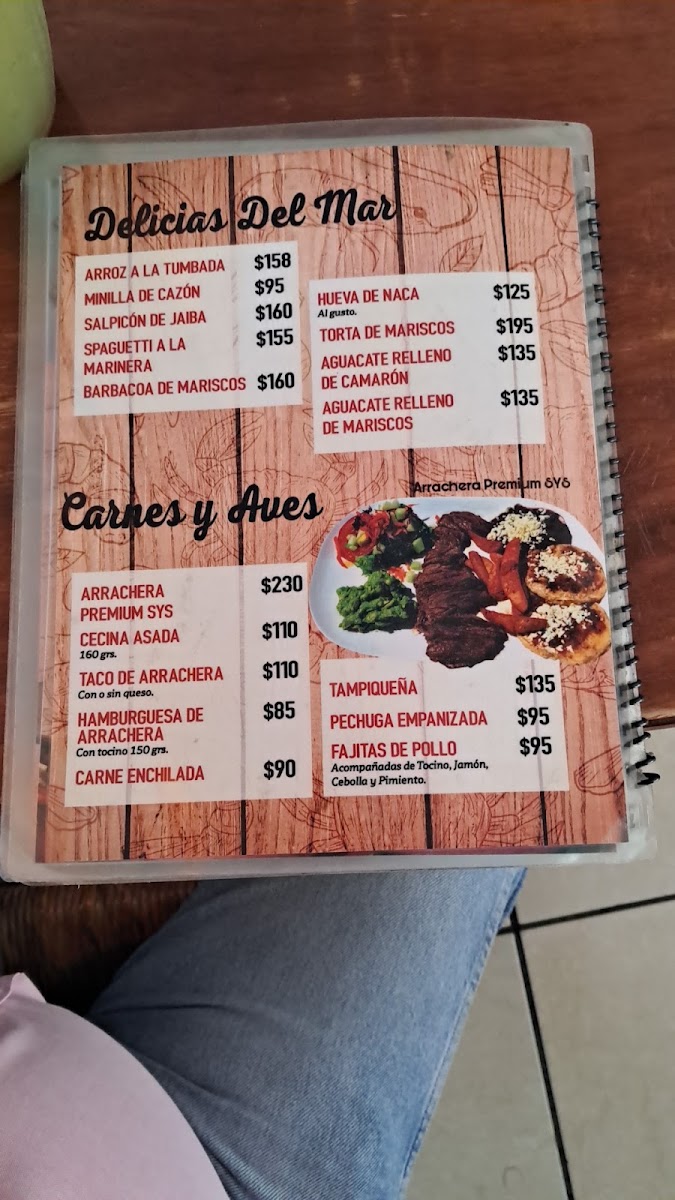 Delicias Del Mar
ARROZ A LA TUMBADA $158
MINILLA DE CAZÓN $95
SALPICÓN DE JAIBA $160
SPAGUETTI A LA $155
MARINERA
BARBACOA DE MARISCOS $160
HUEVA DE NACA $125
Al gusto.
TORTA DE MARISCOS $195
AGUACATE RELLENO $135
DE CAMARÓN
AGUACATE RELLENO $135
DE MARISCOS
Carnes y Aves
Arrachera Premium SYS
ARRACHERA $230
PREMIUM SYS
CECINA ASADA $110
160 grs.
TACO DE ARRACHERA $110
Con o sin queso.
HAMBURGUESA DE $85
ARRACHERA
Con tocino 150 grs.
CARNE ENCHILADA $90
TAMPIQUEÑA $135
PECHUGA EMPANIZADA $95
FAJITAS DE POLLO $95
Acompañadas de Tocino, Jamón,
Cebolla y Pimiento.